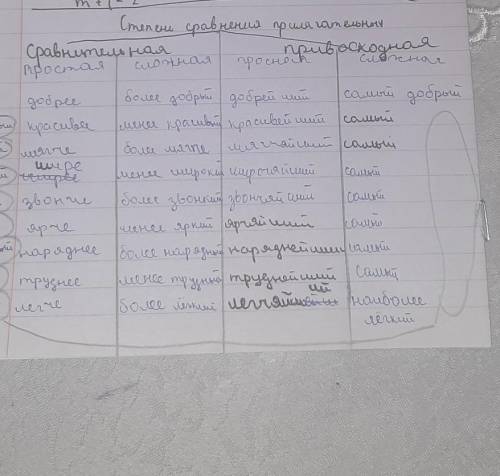 Степени сравнения прилагательных
Сравнительная превосходная
простая сложная простая сложная
добрее более добрый добрейший самый добрый
красивее менее красивый красивейший самый
мягче более мягче мягчайший самый
шире менее широкий широчайший самый
звонче более звонкий звончайший самый
ярче менее яркий ярчайший самый
наряднее более нарядный наряднейший самый
труднее менее трудный труднейший самый
легче более лёгкий легчайший наиболее
лёгкий